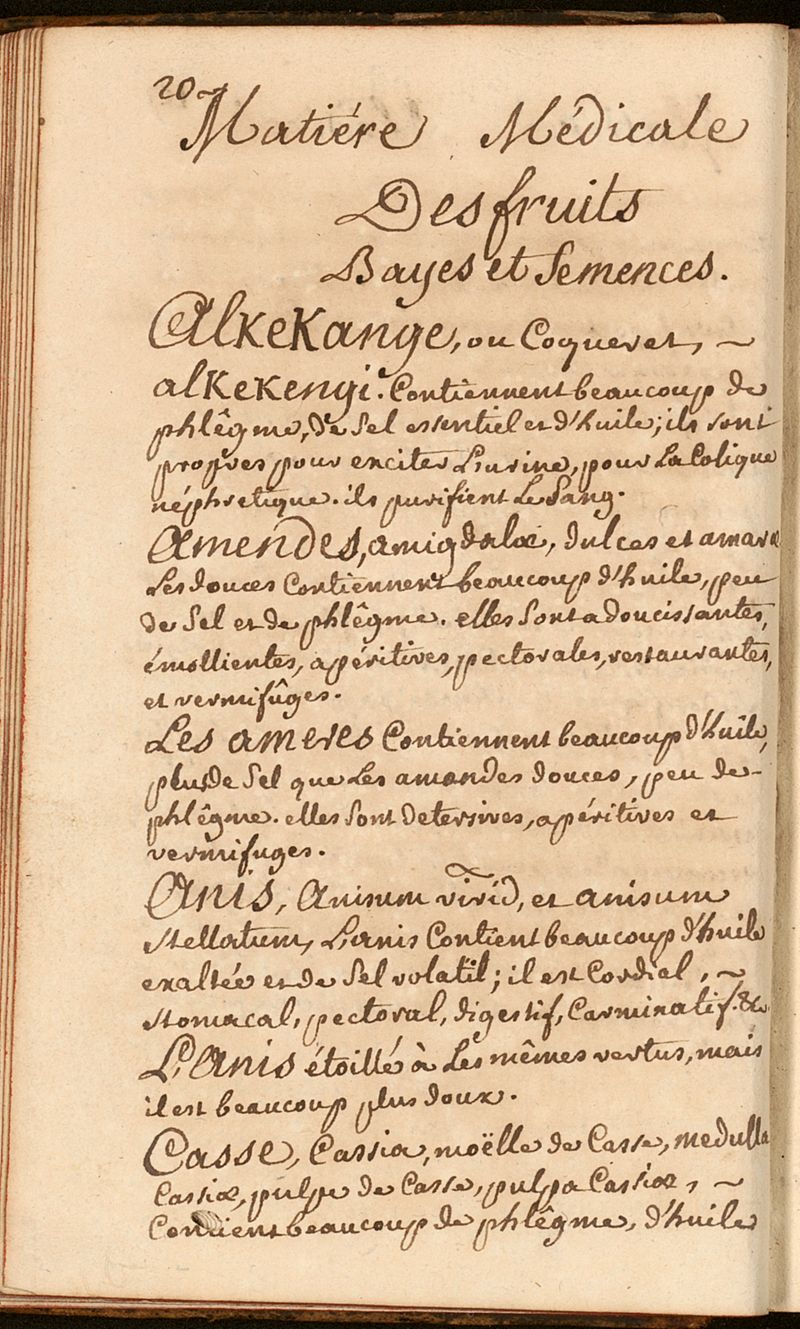 20
Matiére Médicale
Des fruits
Bayes et Semences.
Alkekange, ou Coqueret, ~
alkekengi. Contiennent beaucoup de
phlêgme, de Sel essentiel et d'huile; ils sont
propres pour exciter L'urine, pour La Colique
néphretique. ils purifient Le Sang.
Amendes, amigdalæ, dulces et amaræ
Les douces Contiennent beaucoup d'huile, peu
de Sel et de phlêgme. elles Sont adoucissantes,
émollientes, apéritives, pectorales, restaurantes,
et vermifûges.
Les ameres Contiennent beaucoup d'huile,
plus de Sel que Les amandes douces, peu de-
phlêgme. elles Sont detersives, apéritives et
vermifuges.
Anis, Anisum virid, et anisum
Stellatum, L'anis Contient beaucoup d'huile
exaltée et de Sel volatil; il est Cordial, ~
Stomacal, pectoral, digestif, Carminatif. &c
L'Anis étoillé à Les mêmes vertus, mais
il est beaucoup plus doux.
Casse, Cassia, moëlle de Casse, medulla
Cassiæ, pulpe de Casse, pulpa Cassiæ, ~
Contient beaucoup de phlêgme, d'huile